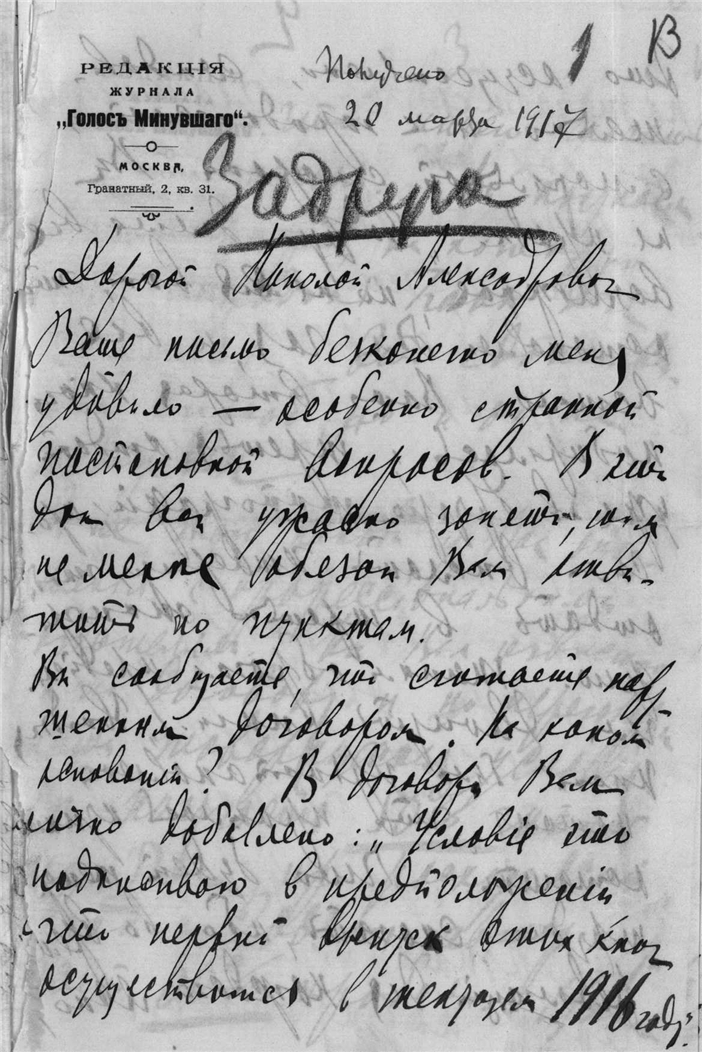 РЕДАКЦІЯ
ЖУРНАЛА
„Голосъ Минувшаго“.
МОСКВА,
Гранатный, 2, кв. 31.
Получено
20 марта 1917
1 В
Задруга
Дорогой Николай Александрович
Ваше письмо безконечно меня
удивило — особенно странной
постановкой вопросов. В эти
дни все ужасно заняты, тем
не менее обязан Вам отве-
тить по пунктам.
Вы сообщаете, что считаете нару
шенным договором. На каком
основаніи? В договоре Вами
лично добавлено: „Условіе это
подписываю в предположеніи
что первый выпуск этих книг
осуществится в текущем 1916 году".